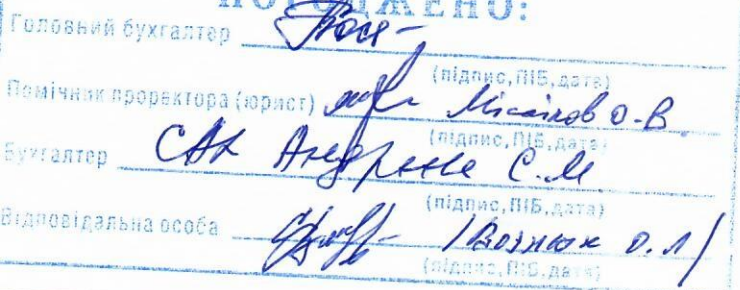 ПОГОДЖЕНО:
Головний бухгалтер
(підпис, ПІБ, дата)
Помічник проректора (юрист) О.В.
(підпис, ПІБ, дата)
Бухгалтер САК С.М.
(підпис, ПІБ, дата)
Відповідальна особа /Вознюк О.Л/
(підпис, ПІБ, дата)